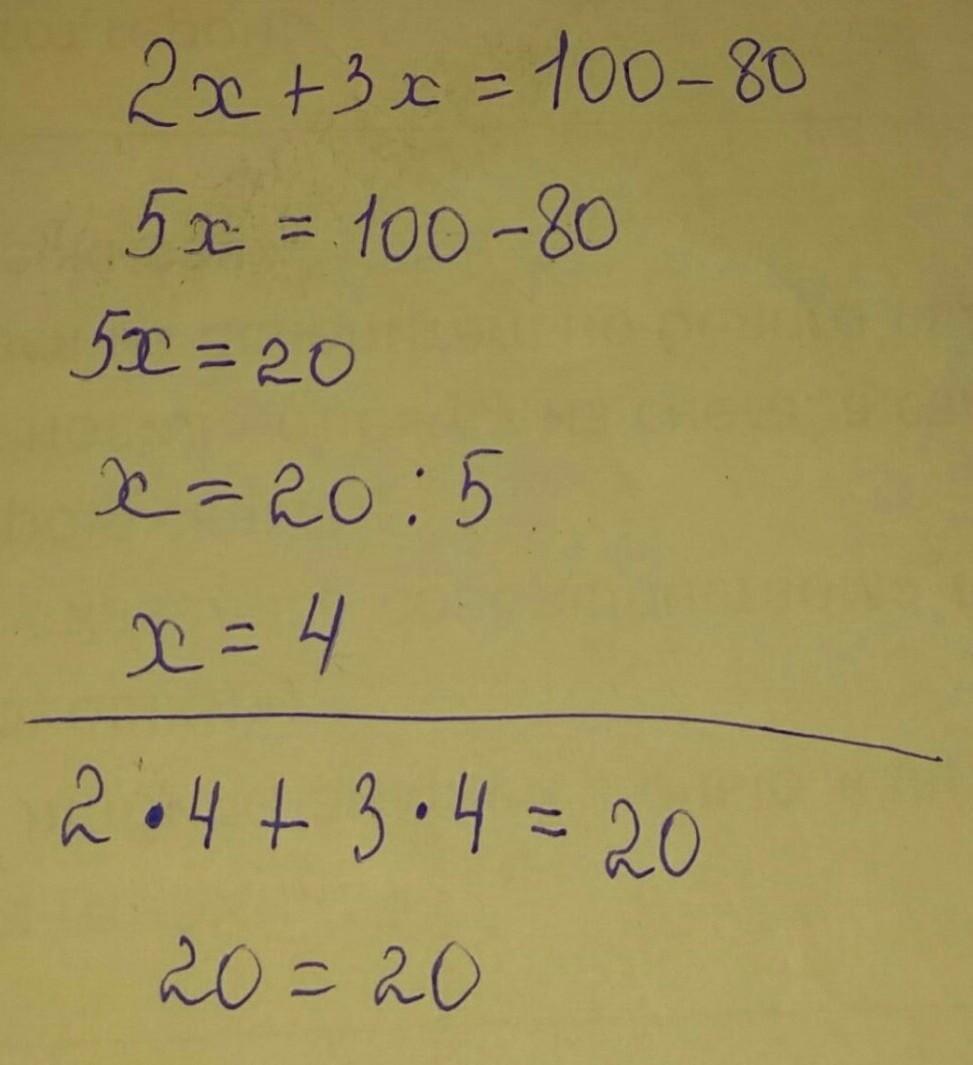 2x + 3x = 100 - 80
5x = 100 - 80
5x = 20
x = 20 : 5
x = 4
2 · 4 + 3 · 4 = 20
20 = 20